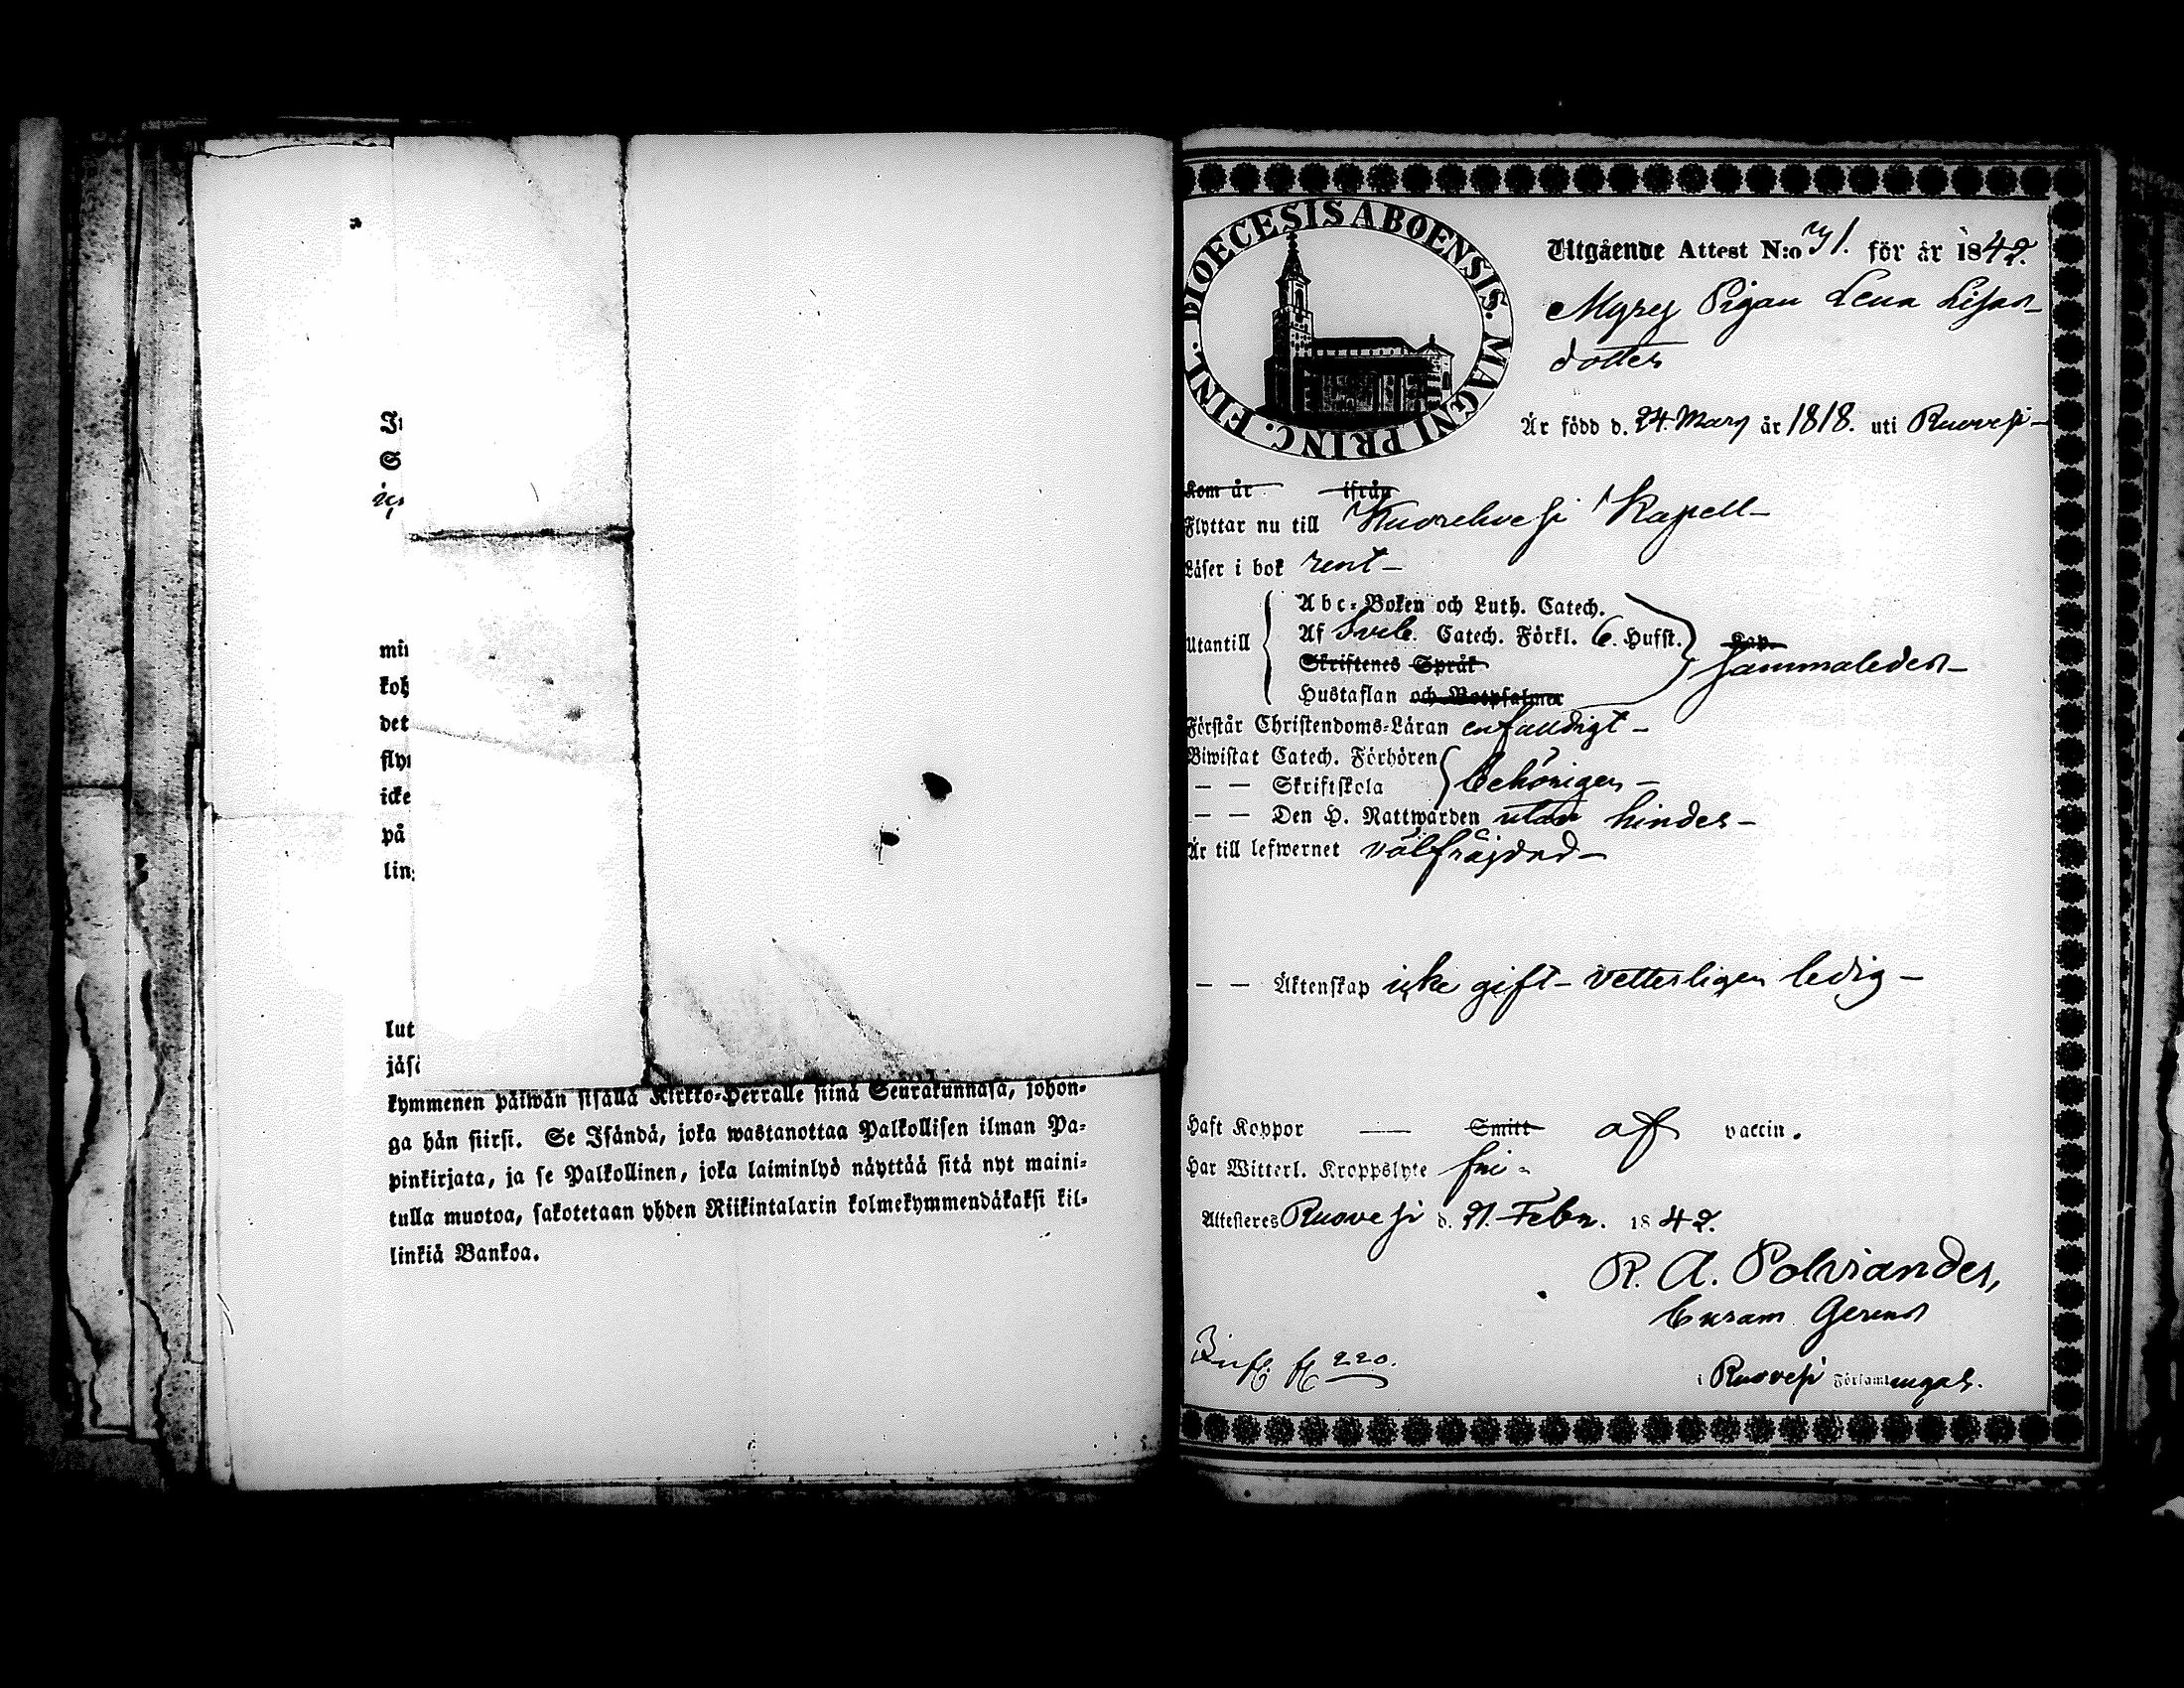 kymmenen päiwän sisällä Kirkko-Herralle siinä Seurakunnasa, johon-
ga hän siirsi. Se Isändä, joka wastanottaa Palkollisen ilman Pa-
pinkirjata, ja se Palkollinen, joka laiminlyö näyttää sitä nyt maini-
tulla muotoa, sakotetaan yhden Riikintalarin kolmekymmendäkaksi kil-
linkiä Bankoa.
DIOECESIS ABOENSIS. MAGNI PRINC. FINL.
Utgående Attest N:o 71. för år 1842.
Pigan Lena Lisa
dotter
Är född d. 24 Mars år 1818. uti Ruovesi
Kom år ifrån
Flyttar nu till Kuorehvesi Kapell
Läser i bok rent
Abc-Boken och Luth. Catech.
Utantill Af Sveb. Catech. Förkl. 6. Hufst. Kap.
Skriftenes Språk sammaleden
Hustaflan och Botpsalmer
Förstår Christendoms-Läran enfaldigt
Biwistat Catech. Förhören
— — Skriftskola behörigen
— — Den H. Nattwarden utan hinder
Är till lefwernet välfräjdad
— — Äktenskap icke gift - vetterligen ledig
Haft Koppor — Smitt af vaccin.
Har Witterl. Kroppslyte fri
Attesteres Ruovesi d. 21. Febr. 1842.
R. A. Polviander,
Curam Gerens
220.
i Ruovesi Församlingar.